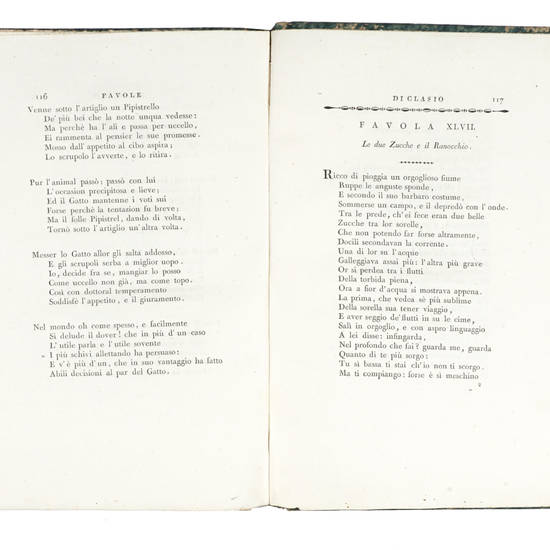 116 FAVOLE
Venne sotto l'artiglio un Pipistrello
De' più bei che la notte unqua vedesse:
Ma perchè ha l'ali e passa per uccello,
Ei rammenta al pensier le sue promesse.
Mosso dall'appetito al cibo aspira;
Lo scrupolo l'avverte, e lo ritira.
Pur l'animal passò; passò con lui
L'occasion precipitosa e lieve;
Ed il Gatto mantenne i voti sui
Forse perchè la tentazion fu breve;
Ma il folle Pipistrel, dando di volta,
Tornò sotto l'artiglio un'altra volta.
Messer lo Gatto allor gli salta addosso,
E gli scrupoli serba a miglior uopo.
Io, decide fra se, mangiar lo posso
Come uccello non già, ma come topo.
Così con dottoral temperamento
Soddisfè l'appetito, e il giuramento.
Nel mondo oh come spesso, e facilmente
Si delude il dover! che in più d'un caso
L'utile parla e l'utile sovente
I più schivi allettando ha persuaso:
E v'è più d'un, che in suo vantaggio ha fatto
Abili decisioni al par del Gatto.
DI CLASIO 117
FAVOLA XLVII.
Le due Zucche e il Ranocchio.
Ricco di pioggia un orgoglioso fiume
Ruppe le anguste sponde,
E secondo il suo barbaro costume,
Sommerse un campo, e il depredò con l'onde.
Tra le prede, ch'ei fece eran due belle
Zucche tra lor sorelle,
Che non potendo far forse altramente,
Docili secondavan la corrente.
Una di lor su l'acque
Galleggiava assai più: l'altra più grave
Or si perdea tra i flutti
Della torbida piena,
Ora a fior d'acqua si mostrava appena.
La prima, che vedea sè più sublime
Della sorella sua tener viaggio,
E aver seggio de'flutti in su le cime,
Salì in orgoglio, e con aspro linguaggio
A lei disse: infingarda,
Nel profondo che fai? guarda me, guarda
Quanto di te più sorgo:
Tu sì bassa ti stai ch'io non ti scorgo.
Ma ti compiango: forse è sì meschino